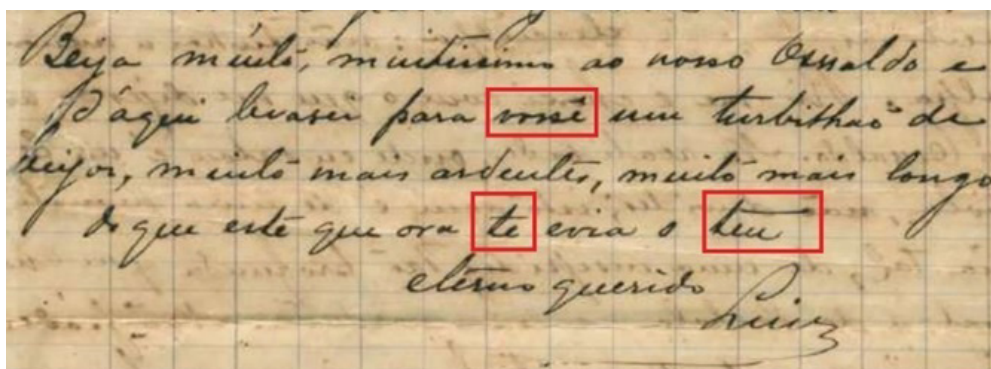 Beija muito, muitissimo ao nosso Oswaldo e
d'aqui levarei para vossê um turbilhão de
beijos, muito mais ardentes, muito mais longo
do que este que ora te evia o teu
eterno querido
Luiz